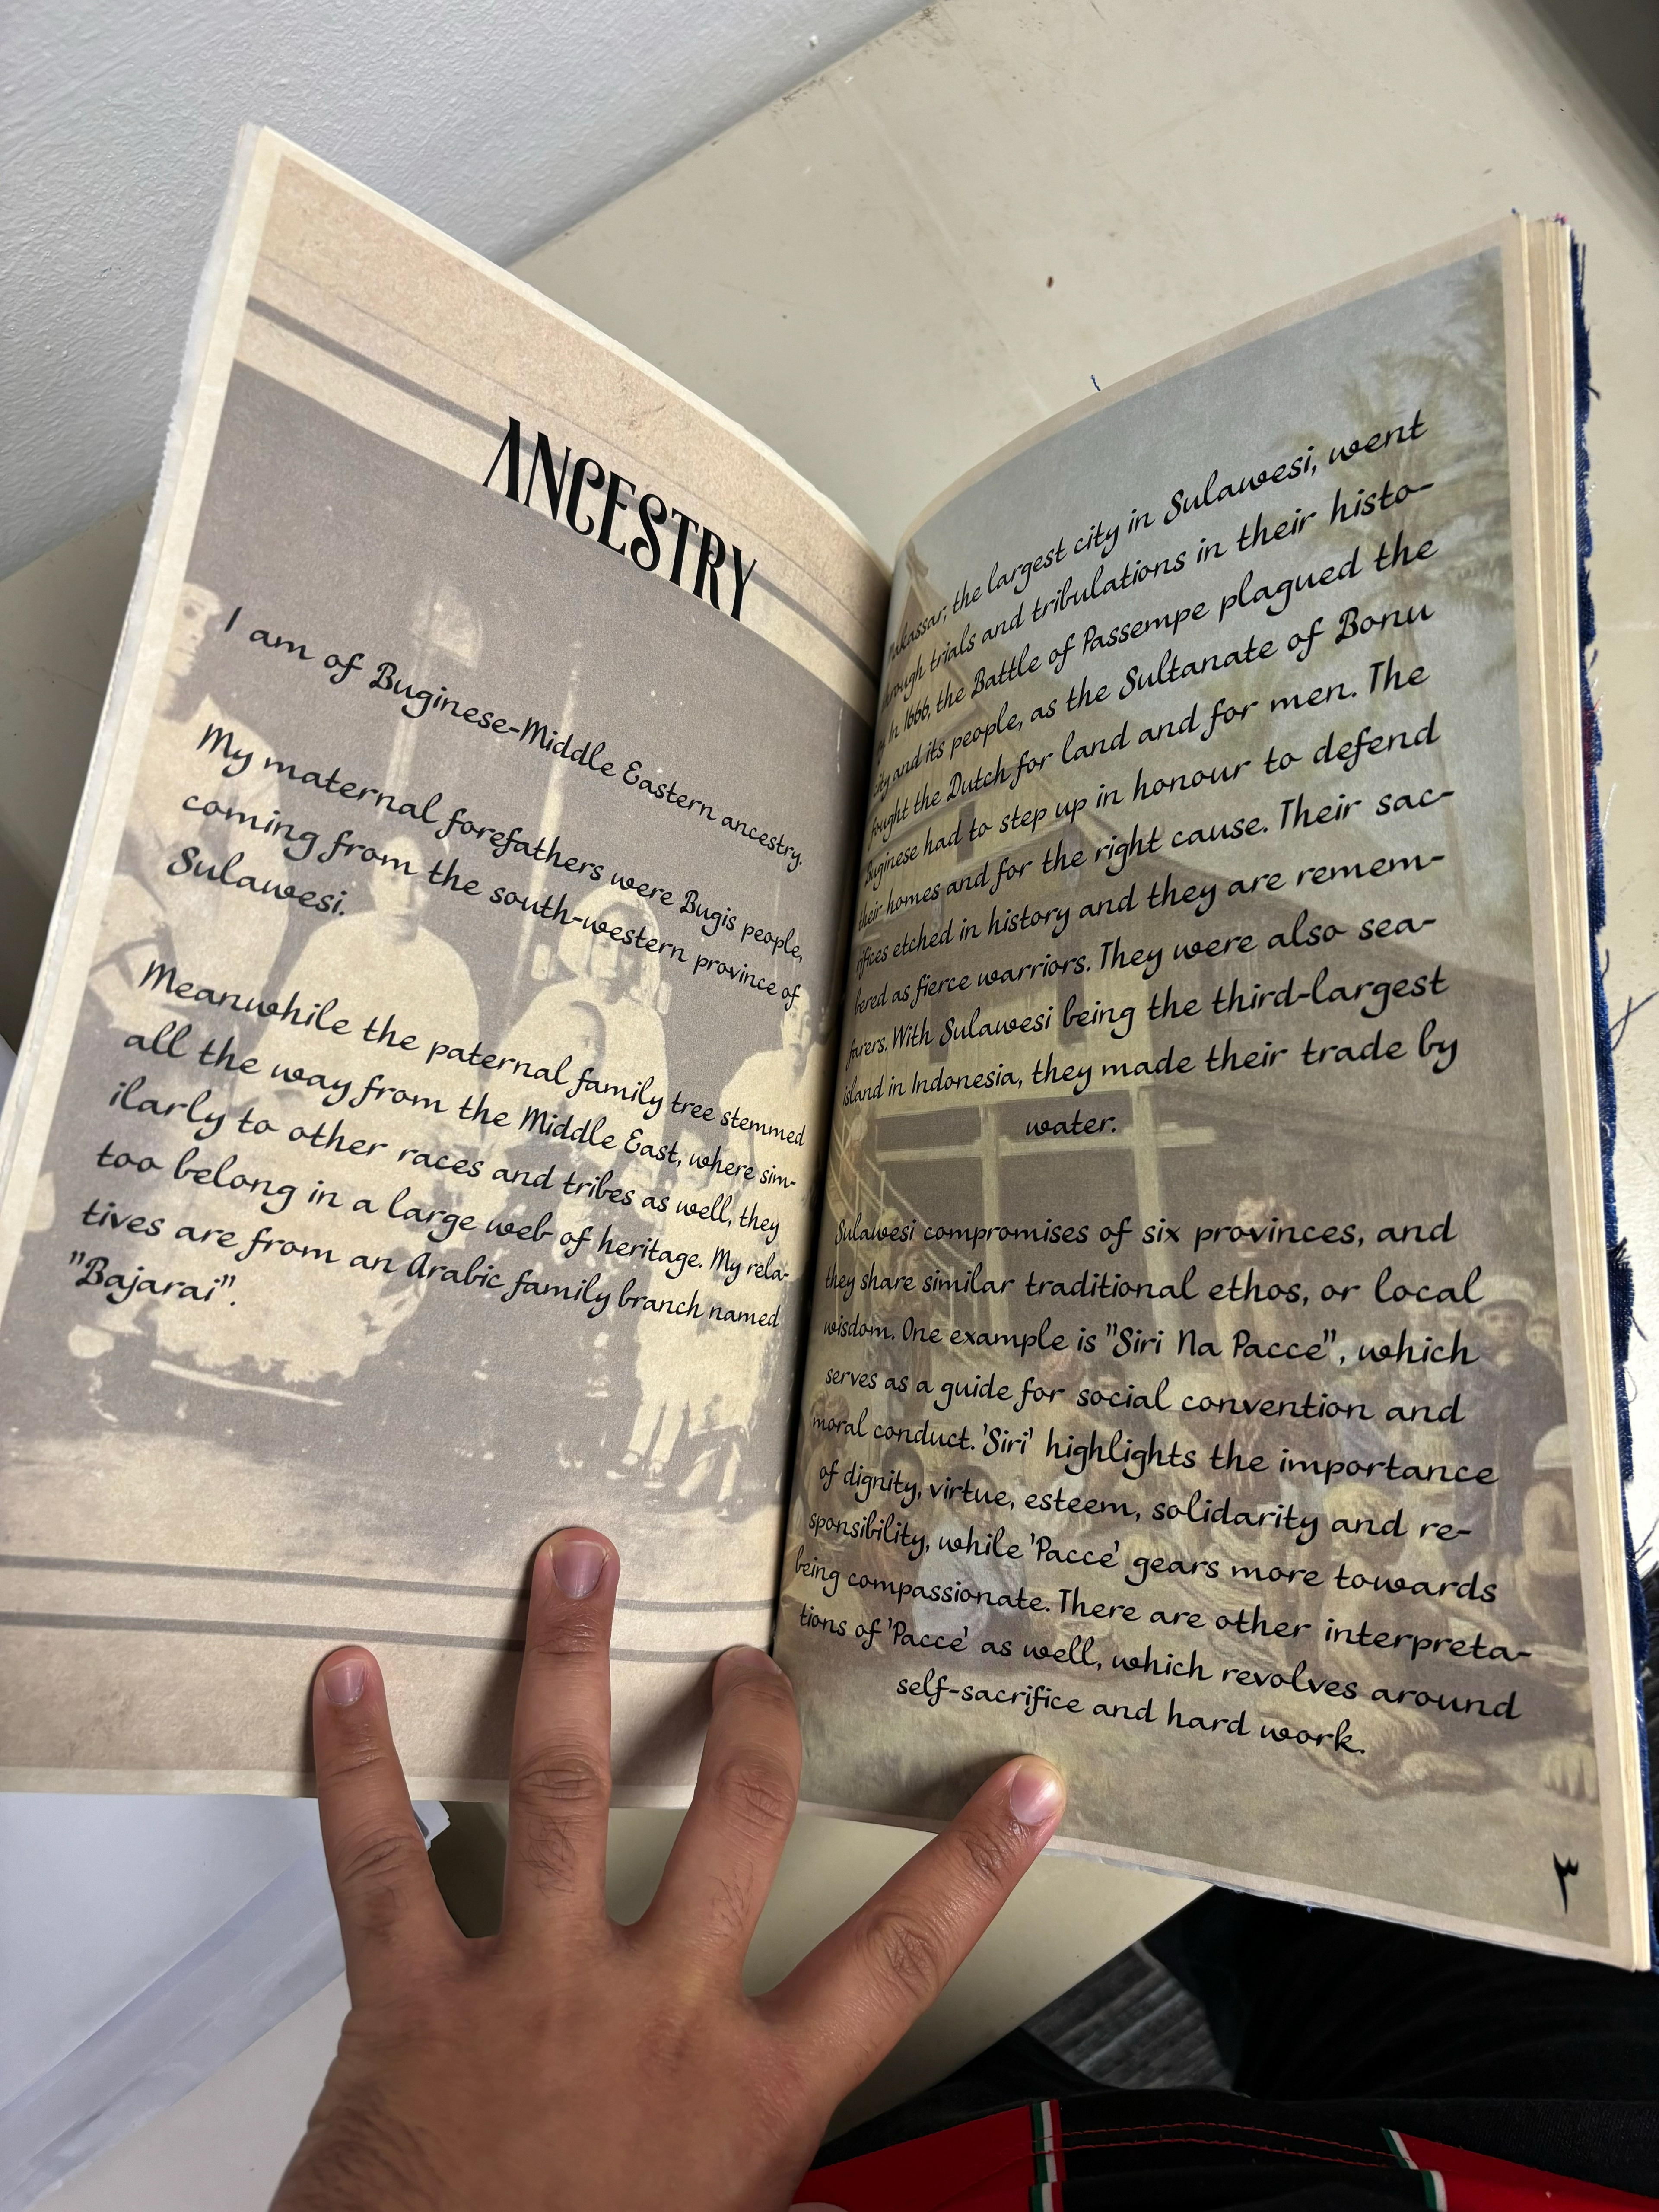 ANCESTRY
I am of Buginese-Middle Eastern ancestry.
My maternal forefathers were Bugis people,
coming from the south-western province of
Sulawesi.
Meanwhile the paternal family tree stemmed
all the way from the Middle East, where sim-
ilarly to other races and tribes as well, they
too belong in a large web of heritage. My rela-
tives are from an Arabic family branch named
"Bajarai".
Makassar, the largest city in Sulawesi, went
through trials and tribulations in their histo-
ry. In 1666, the Battle of Passempe plagued the
city and its people, as the Sultanate of Bonu
fought the Dutch for land and for men. The
Buginese had to step up in honour to defend
their homes and for the right cause. Their sac-
rifices etched in history and they are remem-
bered as fierce warriors. They were also sea-
farers. With Sulawesi being the third-largest
island in Indonesia, they made their trade by
water.
Sulawesi compromises of six provinces, and
they share similar traditional ethos, or local
wisdom. One example is "Siri Na Pacce", which
serves as a guide for social convention and
moral conduct. 'Siri' highlights the importance
of dignity, virtue, esteem, solidarity and re-
sponsibility, while 'Pacce' gears more towards
being compassionate. There are other interpreta-
tions of 'Pacce' as well, which revolves around
self-sacrifice and hard work.
٣